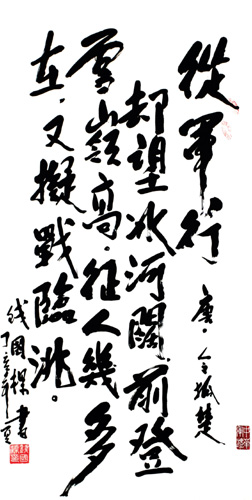 從軍行
唐·令狐楚
却望冰河闊,前登
雪嶺高。征人幾多
在,又擬戰臨洮。
丁亥年夏
國樑書